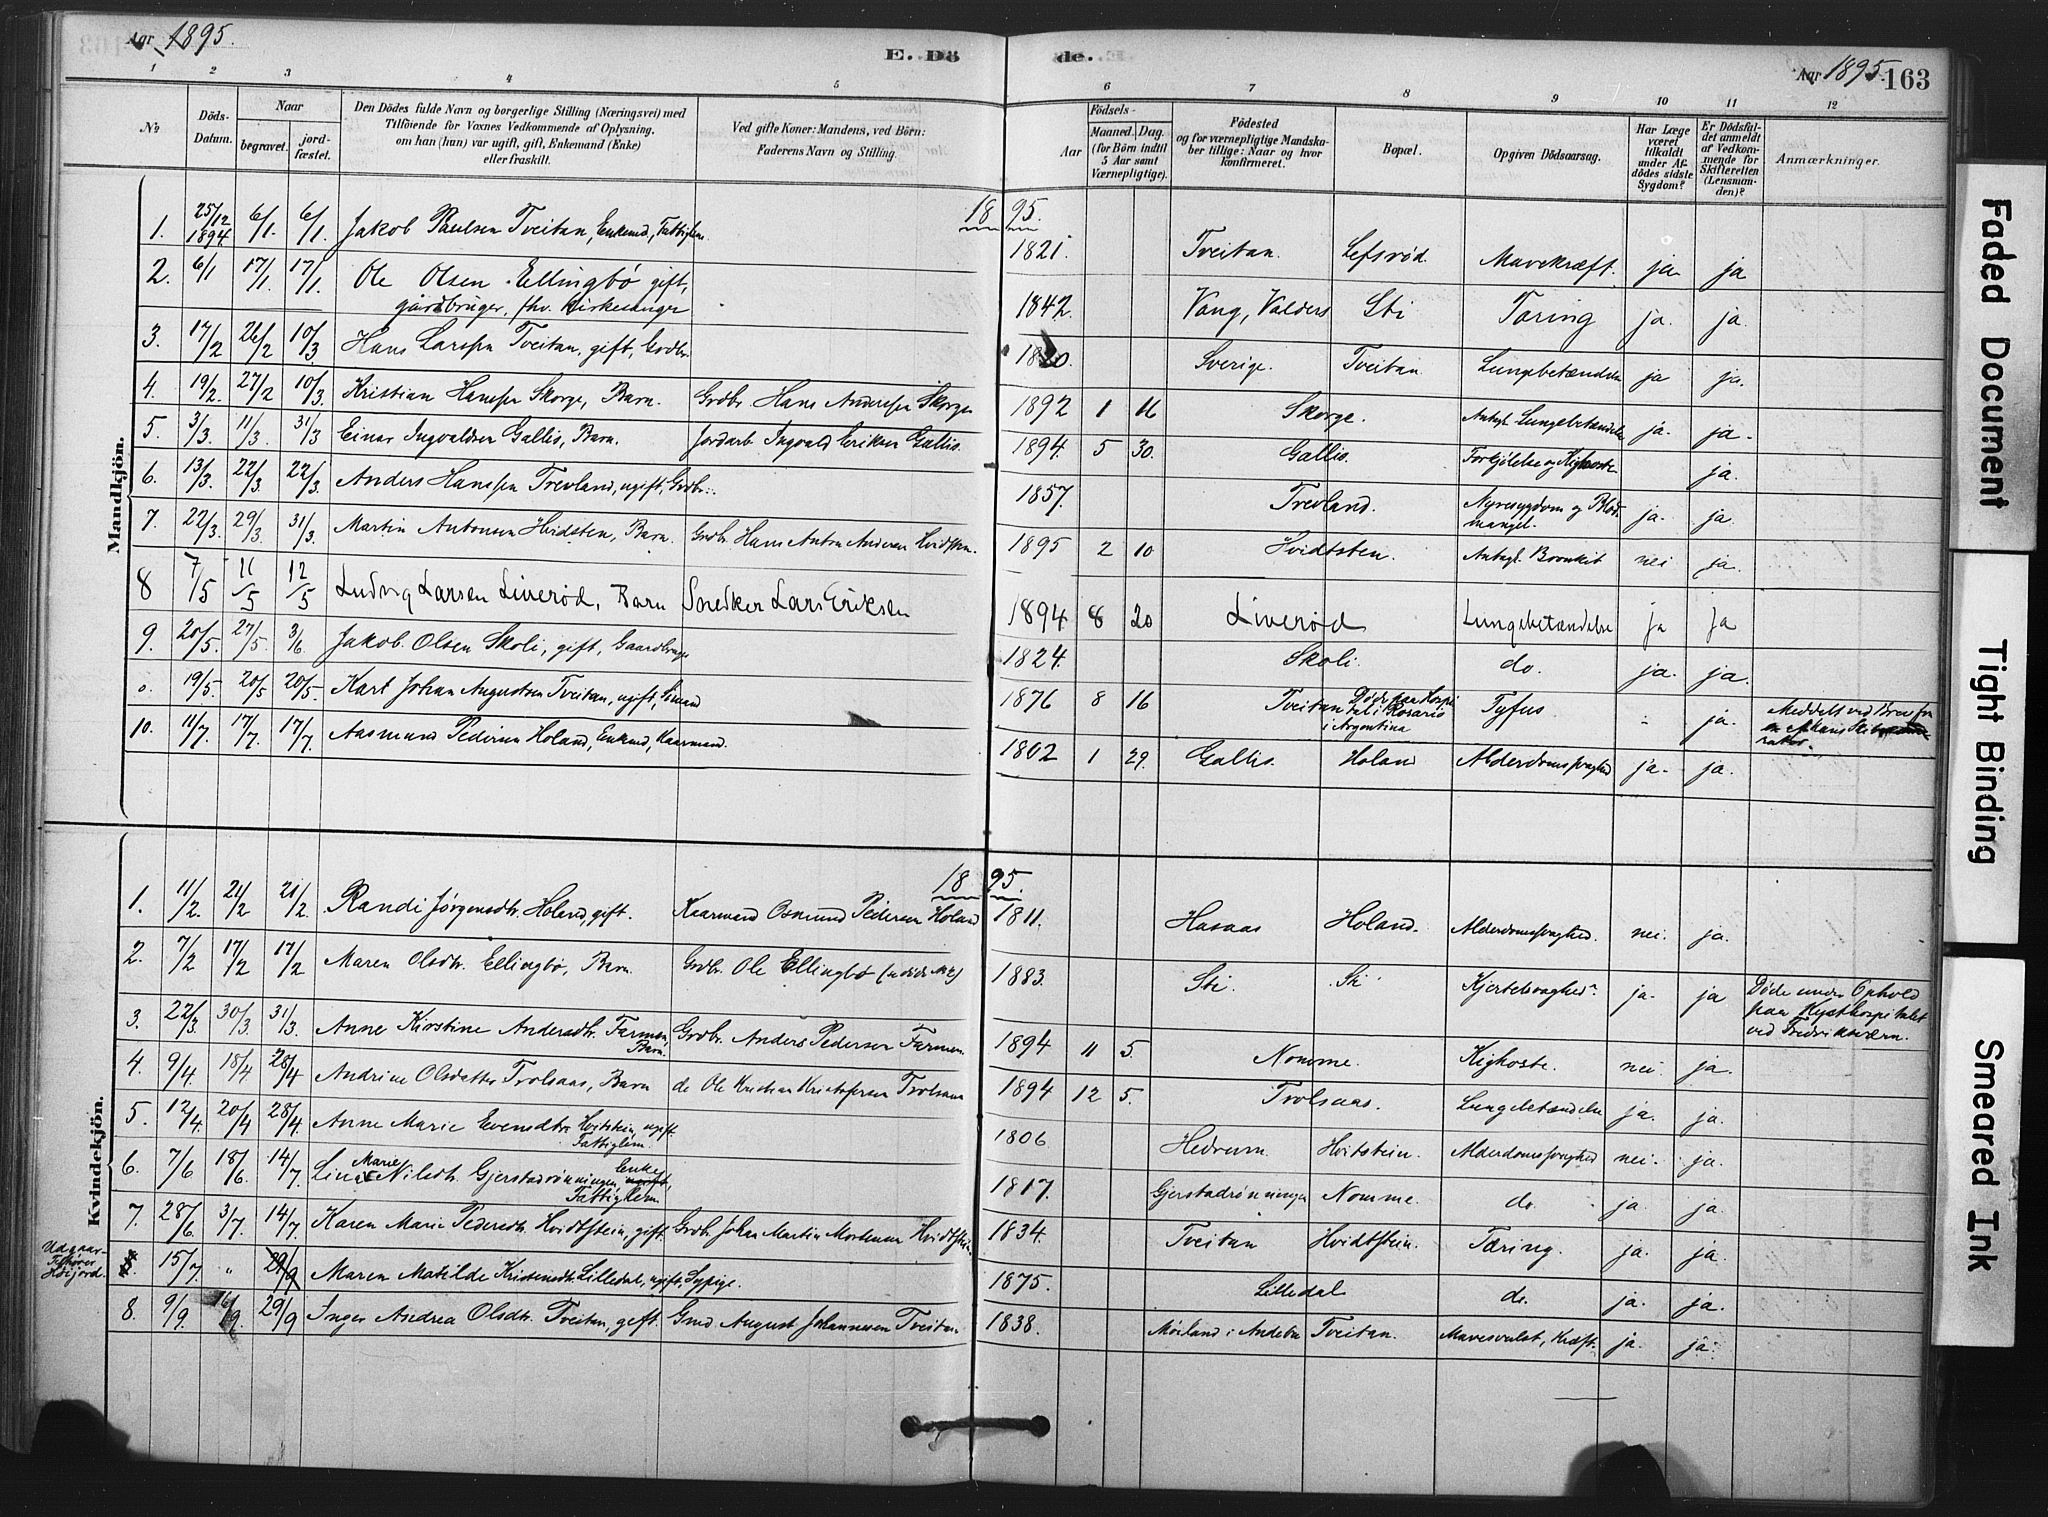 Aar 1895.
E. Döde.
Aar 1895. 163
1 2 3 4 5 6 7 8 9 10 11 12
No
Döds-Datum.
Naar begravet. jordfæstet.
Den Dödes fulde Navn og borgerlige Stilling (Næringsvei) med
Tilföiende for Voxnes Vedkommende af Oplysning,
om han (hun) var ugift, gift, Enkemand (Enke)
eller fraskilt.
Ved gifte Koner: Mandens, ved Börn:
Faderens Navn og Stilling.
Födsels-
Aar Maaned. Dag.
(for Börn indtil 5 Aar samt Værnepligtige).
Födested
og for værnepligtige Mandskaber tillige: Naar og hvor konfirmeret.
Bopæl.
Opgiven Dödsaarsag.
Har Læge været tilkaldt under Afdödes sidste Sygdom?
Er Dödsfaldet anmeldt af Vedkommende for Skifteretten (Lensmanden)?
Anmærkninger.
Mandkjön.
1895.
1. 25/12 1894 6/1. 6/1. Jakob Paulsen Tveitan, Enkemd, Fattiglem. 1821. Tveitan. Lefsrød. Mavekræft. ja ja
2. 6/1 17/1. 17/1. Ole Olsen Ellingbø gift, gårdbruger, fhv. Kirkesanger 1842. Vang, Valders Sti Tæring ja. ja.
3. 17/2 26/2 10/3 Hans Larssen Tveitan, gift, Grdbr. 1820. Sverige. Tveitan. Lungebetændelse ja ja.
4. 19/2. 27/2 10/3. Kristian Hanssen Skorge, Barn. Grdbr. Hans Anderssen Skorge 1892 1 16 Skorge. Antagl. Lungebetændelse ja. ja.
5. 3/3. 11/3. 31/3 Einar Ingvaldsen Gallis, Barn. Jordarb. Ingvald Eriksen Gallis. 1894. 5 30. Gallis. Forkjølelse og Kighoste ja.
6. 13/3. 22/3. 22/3. Anders Hanssen Trevland, ugift, Grdbr. 1857. Trevland. Nyresygdom og Blodmangel. ja. ja.
7. 22/3. 29/3. 31/3. Martin Antonsen Hvidsten, Barn. Grdbr. Hans Anton Andersen Hvidsten. 1895 2 10 Hvidtsten. Antagl. Bronkit nei ja.
8 7/5 11/5 12/5 Ludvig Larsen Liverød, Barn Snedker Lars Eriksen 1894 8 20 Liverød Lungebetændelse ja ja
9. 20/5. 27/5. 3/6. Jakob Olsen Skoli, gift, Gaardbruger 1824. Skoli. do. ja. ja.
o. 19/5. 20/5 20/5. Karl Johan Augustsen Tveitan, ugift, Sømand 1876 8 16 Tveitan Døde paa Hospital i Rosario i Argentina Tyfus ja. Meddelt ved Brev fra
10. 11/7. 17/7. 17/7. Aasmund Pedersen Holand, Enkemd, Kaarmand. 1802 1 29. Gallis. Holand Alderdomssvaghed ja. ja.
Kvindekjön.
1895.
1. 11/2. 21/2 21/2. Randi Jørgensdtr. Holand, gift. Kaarmand Osmund Pedersen Holand 1811. Hasaas Holand. Alderdomssvaghed. nei. ja.
2. 7/2 17/2 17/2 Maren Olsdtr. Ellingbø, Barn. Grdbr. Ole Ellingbø 1883. Sti. Sti Kjertelsvaghed. ja. ja Døde under Ophold paa Kysthospitalet ved Fredriksværn.
3. 22/3 30/3 31/3. Anne Kirstine Andersdtr. Farmen, Barn. Grdbr. Anders Pedersen Farmen 1894 11 5. Nomme. Kighoste. nei. ja.
4. 9/4. 18/4 28/4 Andrine Olsdatter Trolsaas, Barn do Ole Kristian Kristofersen Trolsaas 1894 12 5. Trolsaas. Lungebetændelse ja. ja.
5. 12/4. 20/4 28/4. Anne Marie Evensdtr. Hvitstein, ugift. Fattiglem. 1806 Hedrum. Hvitstein. Alderdomssvaghed nei. ja.
6. 7/6 18/6. 14/7. Lina Marie Nilsdtr. Gjerstadrønningen, Enke, Fattiglem. 1817. Gjerstadrønningen Nomme. do. ja. ja.
7. 28/6 3/7. 14/7. Karen Marie Pedersdtr. Hvidtstein, gift. Grdbr. Johan Martin Mortensen Hvidtstein. 1834. Tveitan Hvidtstein. Tæring. ja. ja.
Udgaar. Tilhører Høijord. 8. 15/7. " 29/9 Maren Matilde Kristensdtr. Lilledal, ugift, Sypige. 1875. Lilledal do. ja. ja.
8. 9/9. 16/9. 29/9 Inger Andrea Olsdtr. Tveitan, gift. Gmd. August Johannesen Tveitan 1838. Møiland i Andebu Tveitan. Mavesvulst, Kræft. ja. ja.
Faded Document
Tight Binding
Smeared Ink